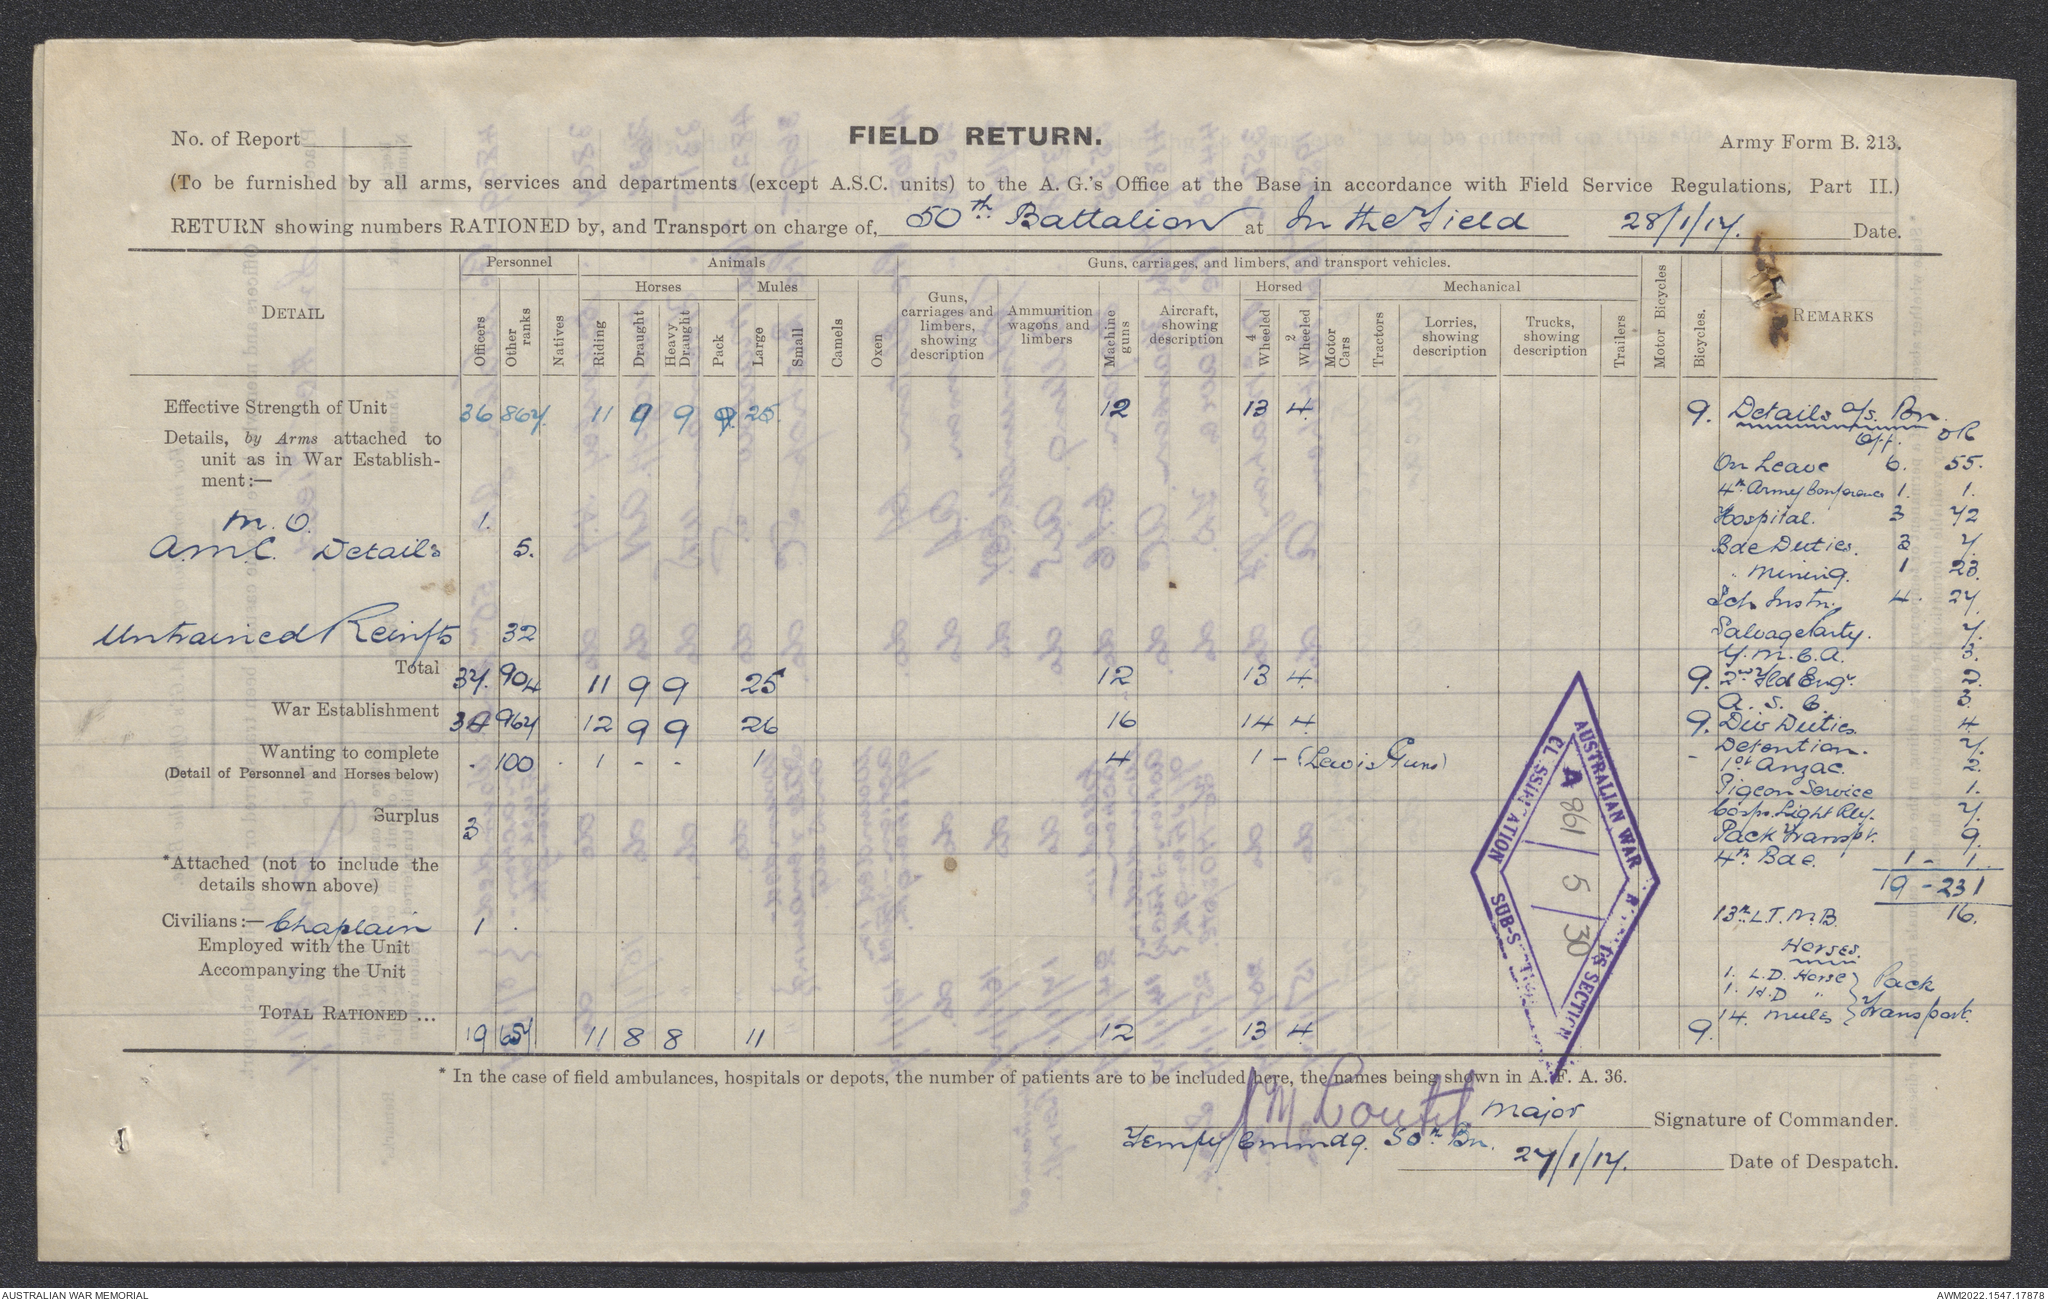 No. of Report
FIELD RETURN.
Army Form B. 213.
(To be furnished by all arms, services and departments (except A.S.C. units) to the A. G.'s Office at the Base in accordance with Field Service Regulations, Part II.)
RETURN showing numbers RATIONED by, and Transport on charge of, 50th Battalion at In the Field 28/1/17. Date.
DETAIL
Personnel
Animals
Guns, carriages, and limbers, and transport vehicles.
Horses
Mules
Horsed
Mechanical
Officers
Other ranks
Natives
Riding
Draught
Heavy Draught
Pack
Large
Small
Camels
Oxen
Guns, carriages and limbers, showing description
Ammunition wagons and limbers
Machine guns
Aircraft, showing description
4 Wheeled
2 Wheeled
Motor Cars
Tractors
Lorries, showing description
Trucks, showing description
Trailers
Motor Bicycles
Bicycles.
REMARKS
Effective Strength of Unit 36 867. 11 9 9 25 12 13 4. 9.
Details, by Arms attached to
unit as in War Establish-
ment:—
M.O. 1.
A.M.C. Details 5.
Untrained Reinfts 32
Total 37. 904 11 9 9 25 12 13 4. 9.
War Establishment 34 964 12 9 9 26 16 14 4 9.
Wanting to complete . 100 . 1 - - 1 4 1 - (Lewis Guns) -
(Detail of Personnel and Horses below)
Surplus 3
*Attached (not to include the
details shown above)
Civilians:— Chaplain 1 .
Employed with the Unit
Accompanying the Unit
TOTAL RATIONED ... 19 657 11 8 8 11 12 13 4. 9.
Details a/s. Bn.
Off. OR
On Leave 6. 55.
4th Army Conference 1. 1.
Hospital. 3 72
Bde Duties. 3 7.
" Mining. 1 23.
Sch Instn. 4. 27.
Salvage Party. 7.
Y.M.C.A. 3.
2nd Fld Engr. 2.
A. S. C. 3.
Div Duties 4.
Detention. 7.
1st Anzac. 2.
Pigeon Service 1.
Corps Light Rly. 7.
Pack Transpt. 9.
4th Bde. 1 - 1
19 - 231
13th L.T.M.B. 16.
Horses.
1. L.D. Horse
1. H.D "
14. Mules
Pack
Transport.
AUSTRALIAN WAR
CLASSIFICATION
SUB-S
SECTION
A 861 / 5 / 30
* In the case of field ambulances, hospitals or depots, the number of patients are to be included here, the names being shown in A. F. A. 36.
Major Signature of Commander.
Tempy Cmmdg. 50th Bn.
27/1/17. Date of Despatch.
AUSTRALIAN WAR MEMORIAL
AWM2022.1547.17878